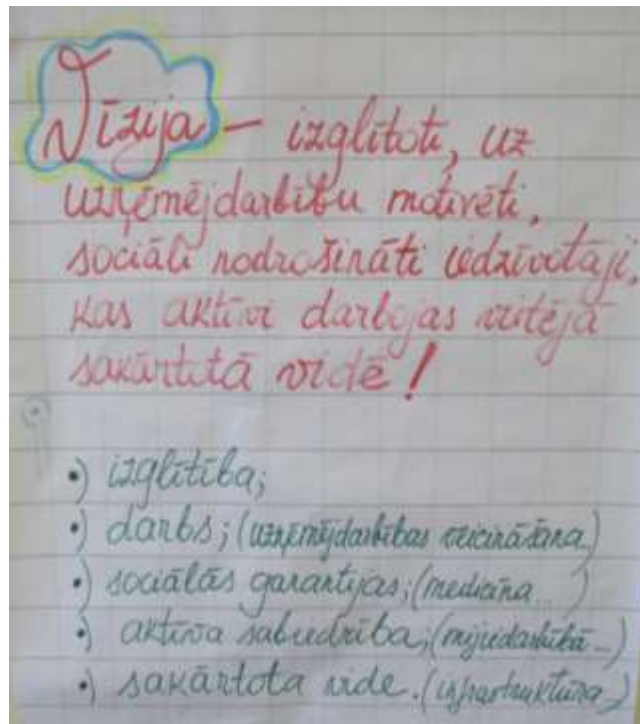 Vīzija – izglītoti, uz
uzņēmējdarbību motivēti,
sociāli nodrošināti iedzīvotāji,
kas aktīvi darbojas vietējā
sakārtotā vidē!
•) izglītība;
•) darbs; (uzņēmējdarbības veicināšana...)
•) sociālās garantijas; (medicīna...)
•) aktīva sabiedrība; (mijiedarbībā...)
•) sakārtota vide. (infrastruktūra...)